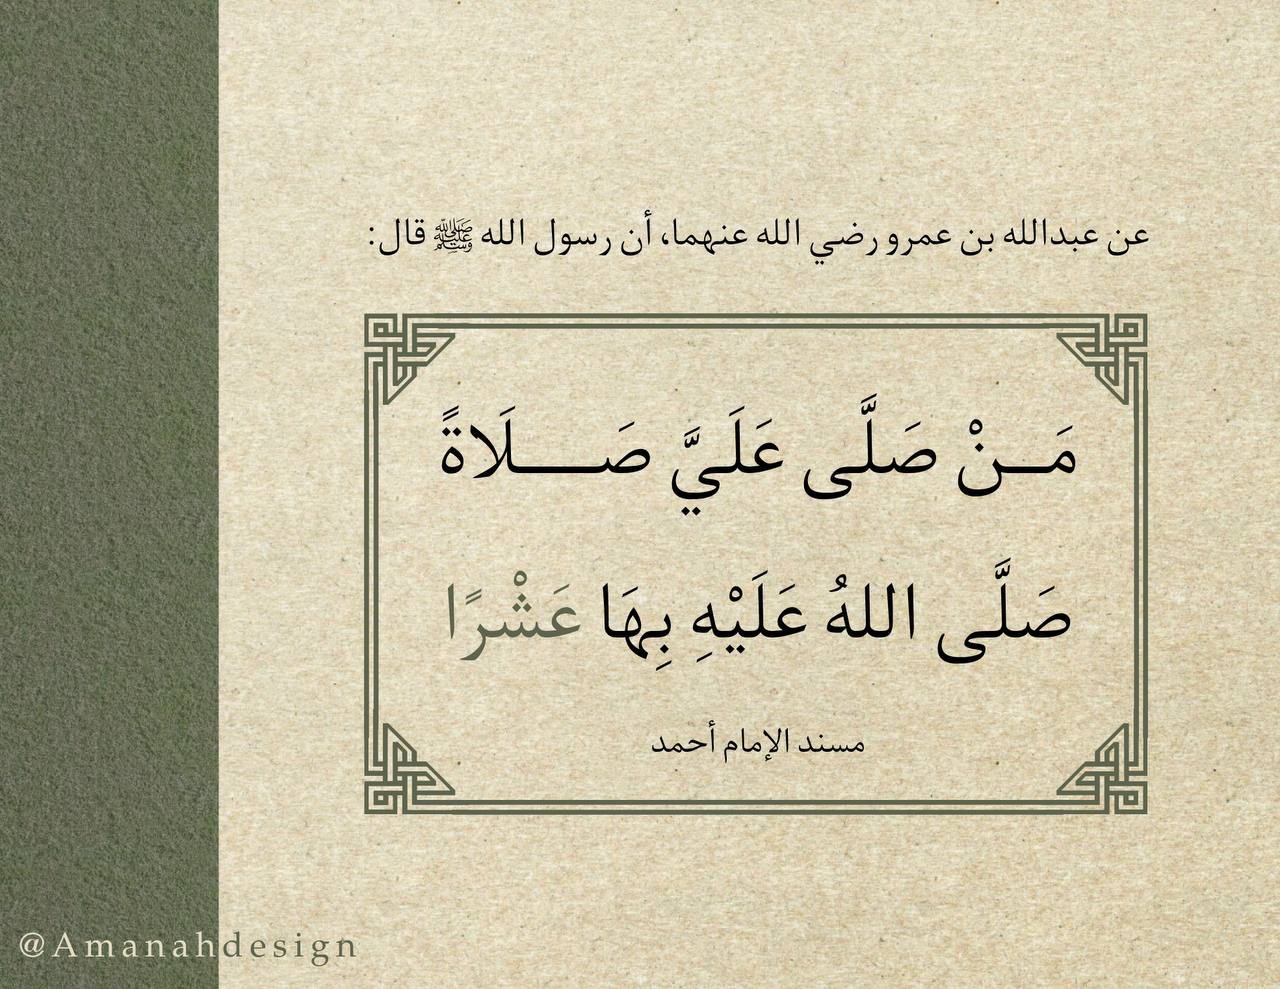 عن عبدالله بن عمرو رضي الله عنهما، أن رسول الله ﷺ قال:
مَـــنْ صَلَّى عَلَيَّ صَـــــلَاةً
صَلَّى اللهُ عَلَيْهِ بِهَا عَشْرًا
مسند الإمام أحمد
@Amanahdesign